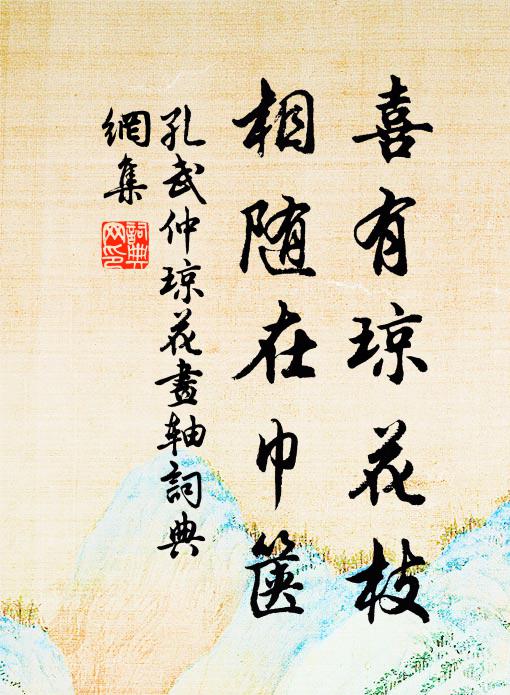 喜有琼花枝
相随在巾箧
孔武仲琼花畫轴詞典
網集
詞典网印